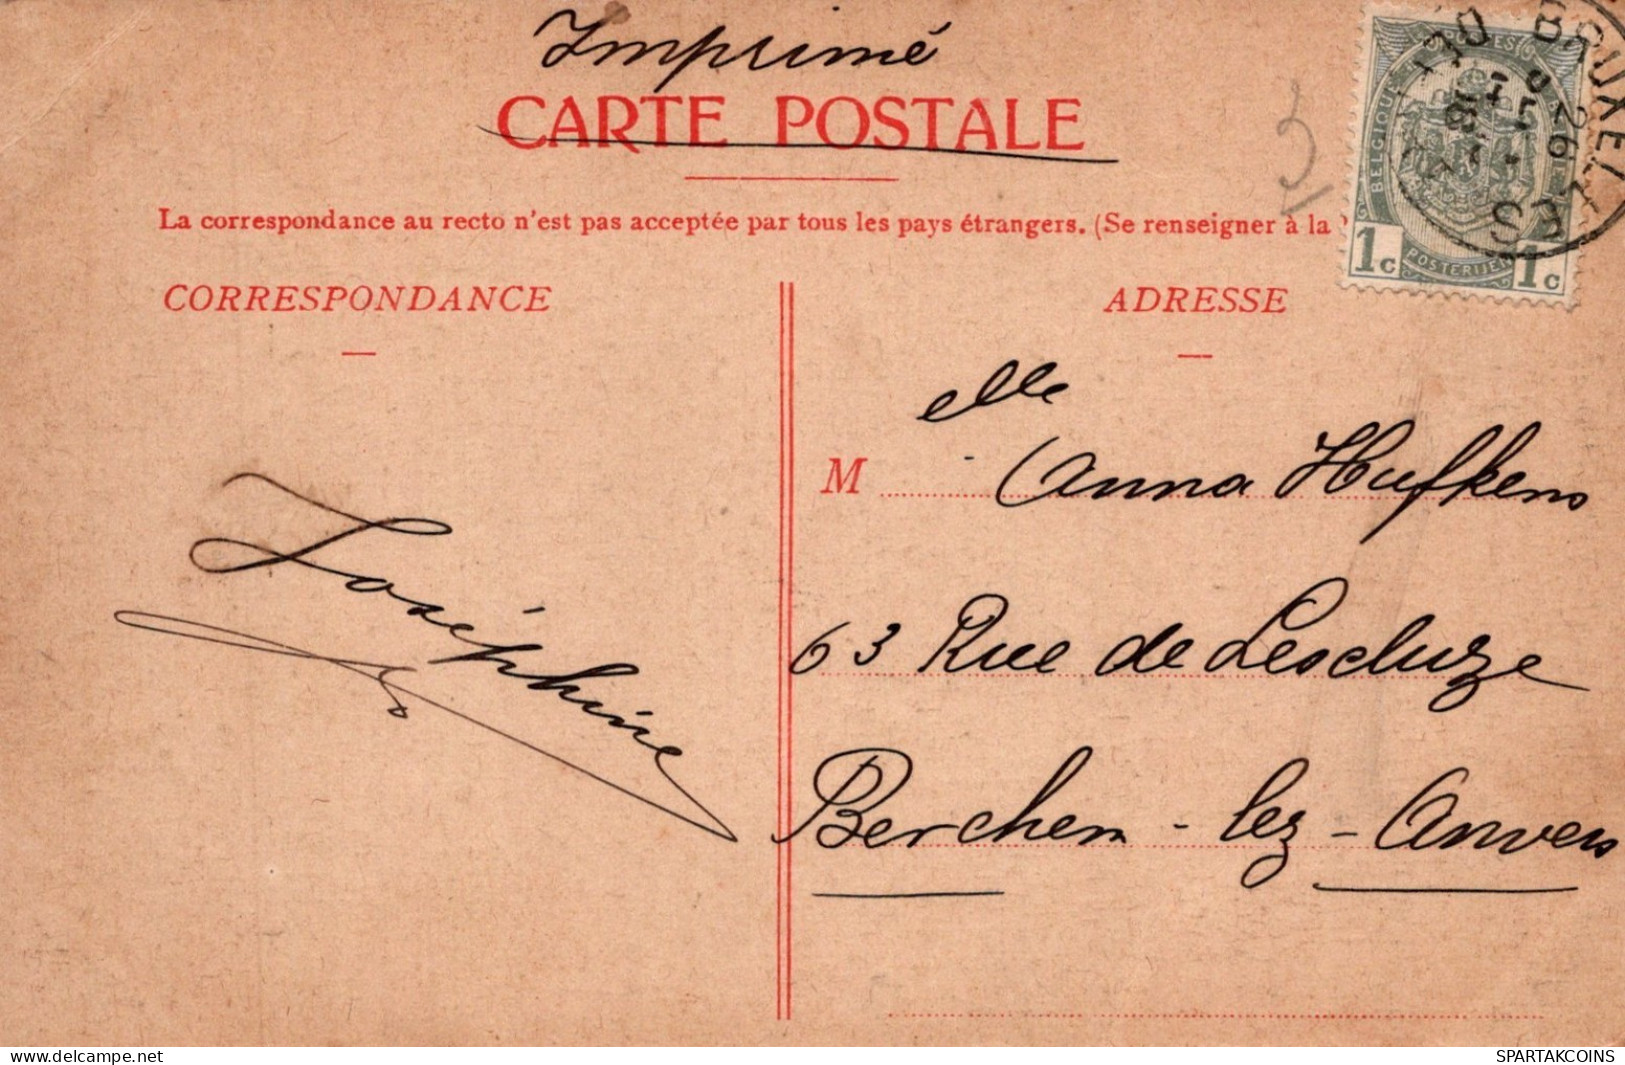 Imprimé
CARTE POSTALE
La correspondance au recto n'est pas acceptée par tous les pays étrangers. (Se renseigner à la
CORRESPONDANCE
ADRESSE
BELGIQUE
POSTERIJEN
1c 1c
BRUXELLES
26
3
elle
M Anna Hufkens
63 Rue de Lescluze
Berchem-lez-Anvers
Joséphine
delcampe.net
SPARTAKCOINS